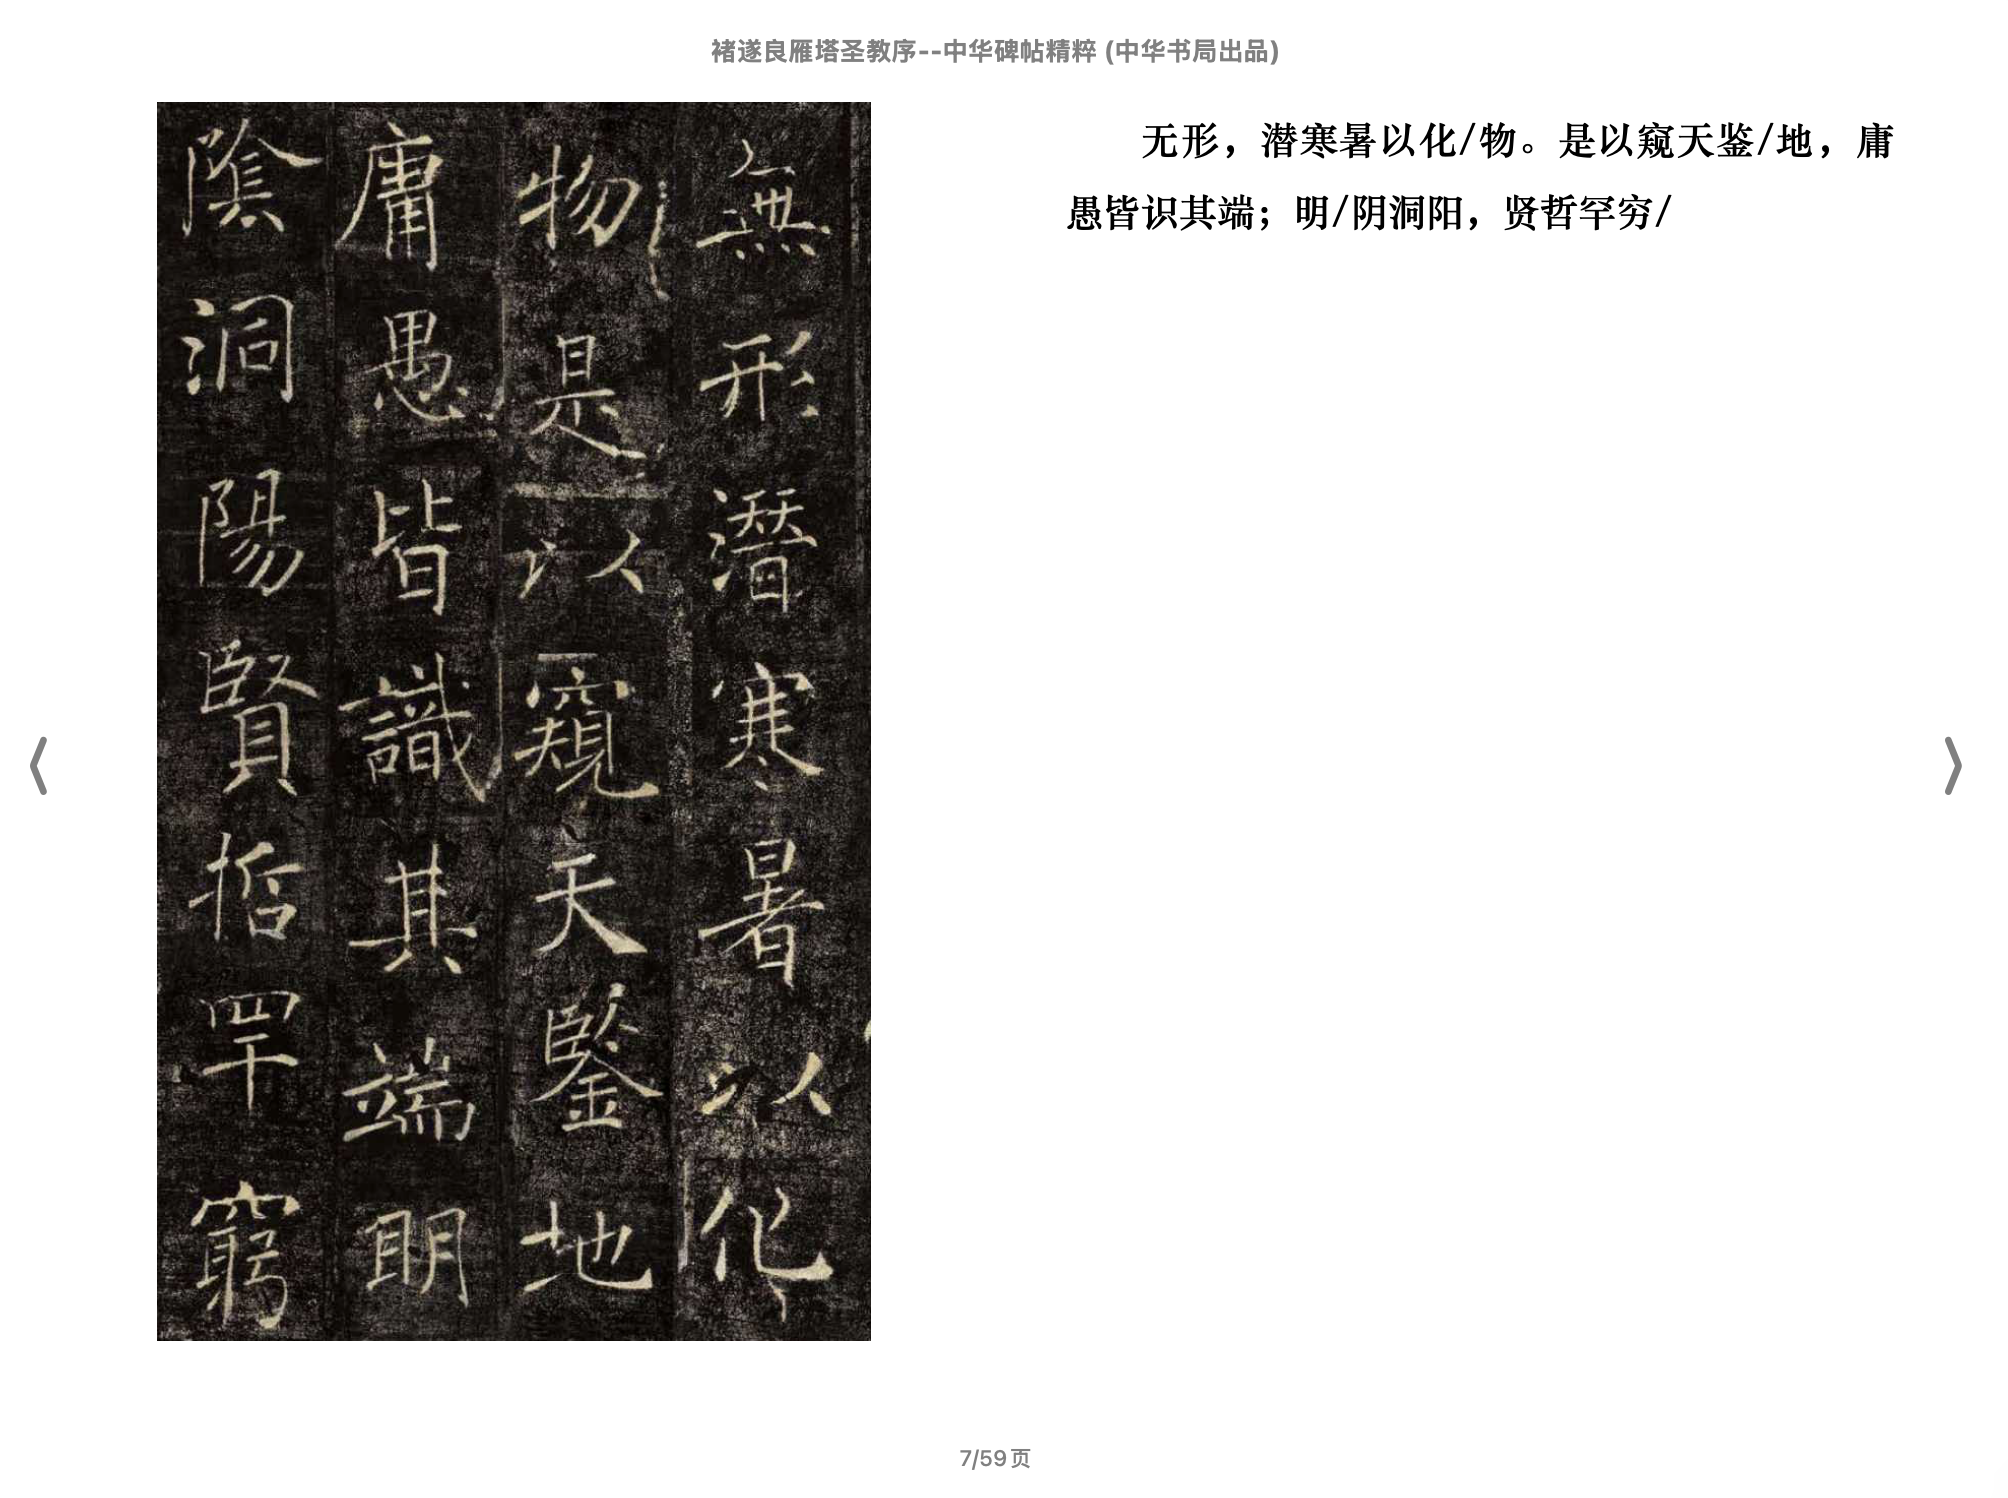 褚遂良雁塔圣教序--中华碑帖精粹 (中华书局出品)
無形潛寒暑以化
物是以窺天鑒地
庸愚皆識其端明
陰洞陽賢哲罕窮
无形，潜寒暑以化/物。是以窥天鉴/地，庸
愚皆识其端；明/阴洞阳，贤哲罕穷/
7/59页